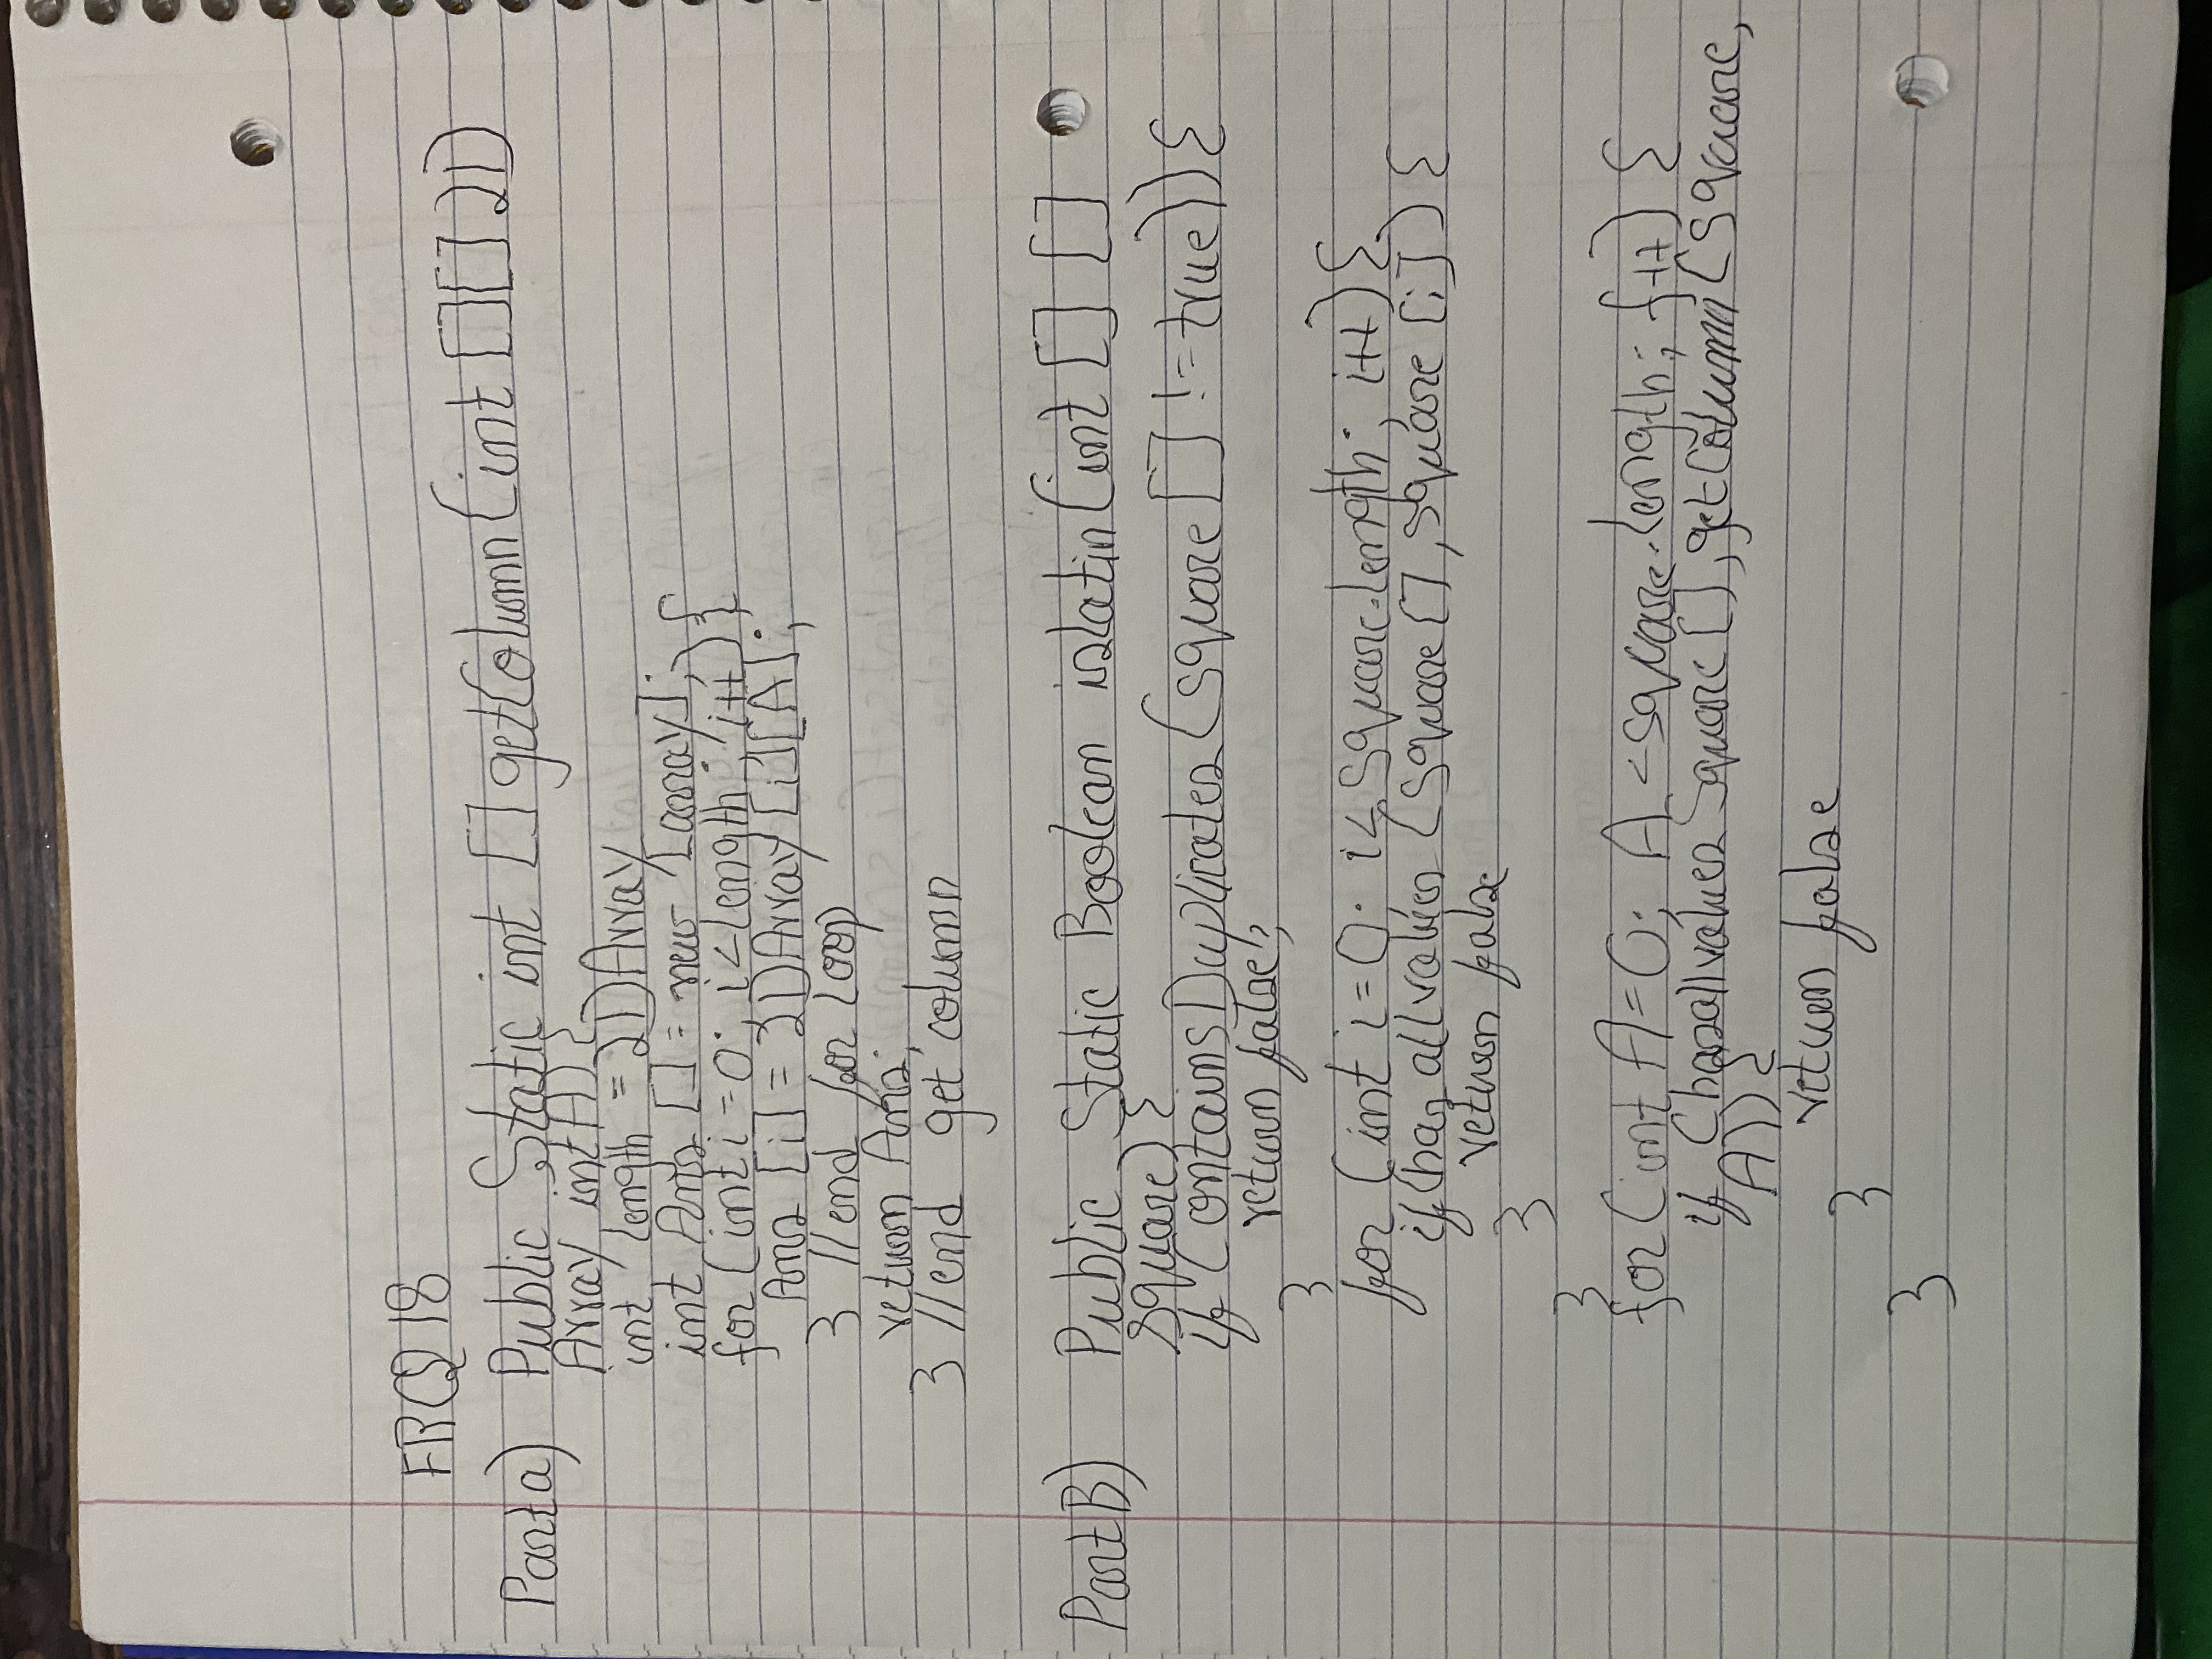 FRQ 18
Part a) Public Static int [] getColumn (int [][] 2D
Array, int A) {
int length = 2D Array
int Ans [] = new [array];
for (int i = 0; i < length; i++) {
Ans [i] = 2D Array [i][A];
} // end for loop
return Ans;
} // end get column
Part B) Public Static Boolean islatin (int [] []
square) {
if (ContainsDuplicates (square [] != true)) {
return false;
}
for (int i = 0; i < square.length; i++) {
if (has all values (square [], square [i]) {
return false
}
}
for (int A = 0; A < square.length; f++) {
if (hasallvalues square [], getColumn (square,
A)) {
return false
}
}